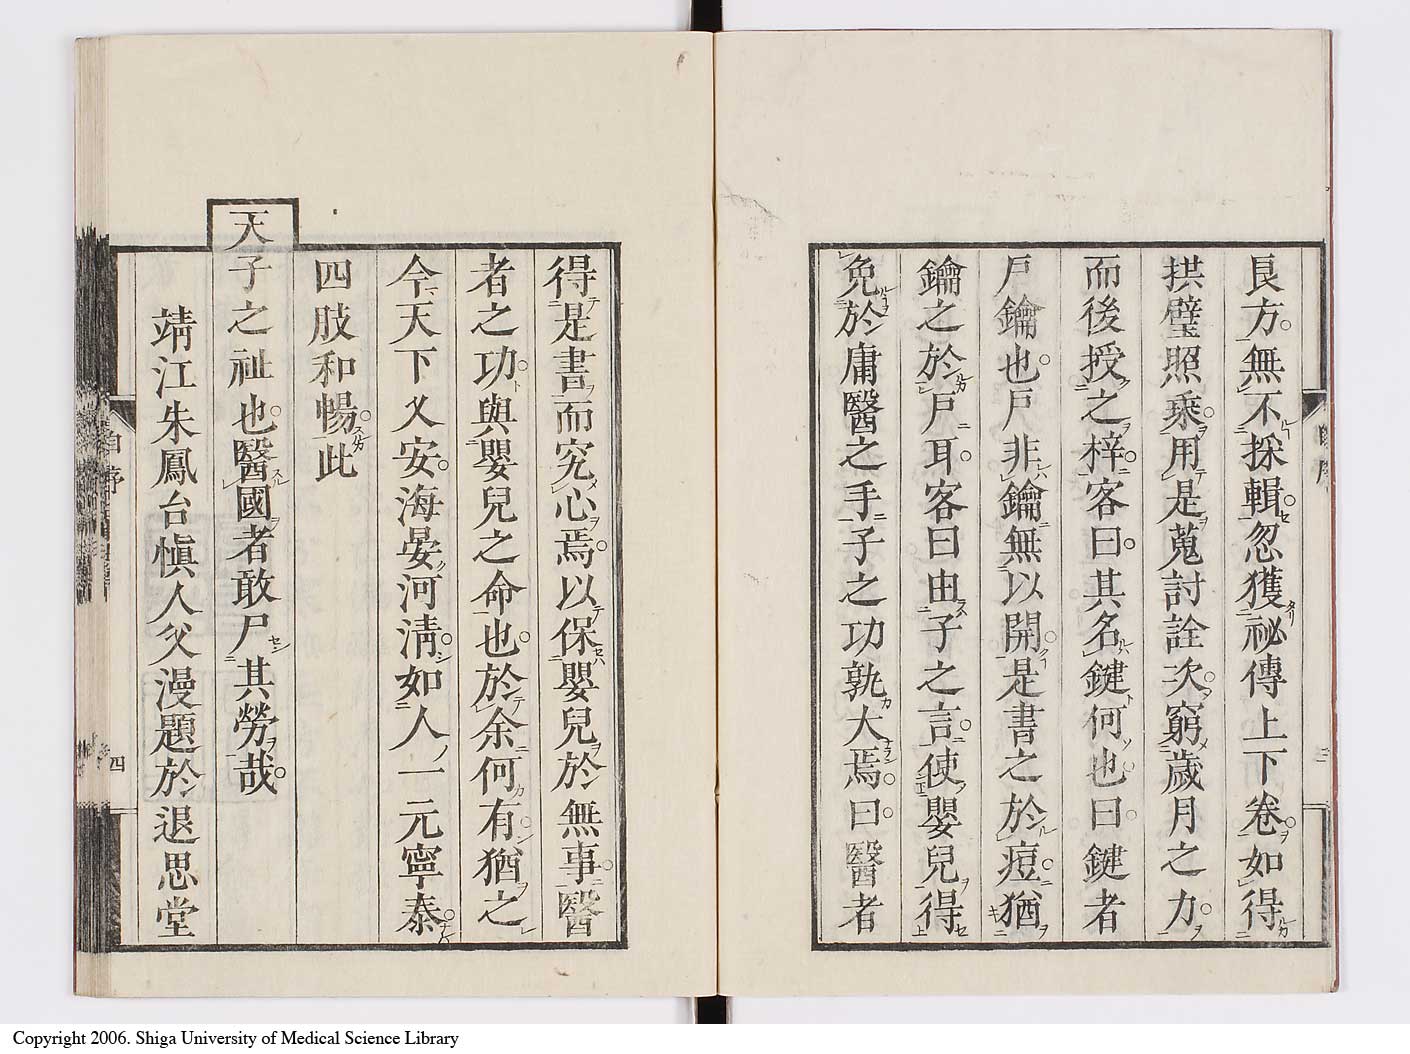 良方無不採輯忽獲祕傳上下卷如得
拱璧照乘用是蒐討詮次窮歲月之力
而後授之梓客曰其名鍵何也曰鍵者
戶鑰也戶非鑰無以開是書之於痘猶
鑰之於戶耳客曰由子之言使嬰兒得
免於庸醫之手子之功孰大焉曰醫者
得是書而究心焉以保嬰兒於無事醫
者之功與嬰兒之命也於余何有猶之
今天下乂安海晏河淸如人一元寧泰
四肢和暢此
天子之祉也醫國者敢尸其勞哉
靖江朱鳳台愼人父漫題於退思堂
自序
四
Copyright 2006. Shiga University of Medical Science Library